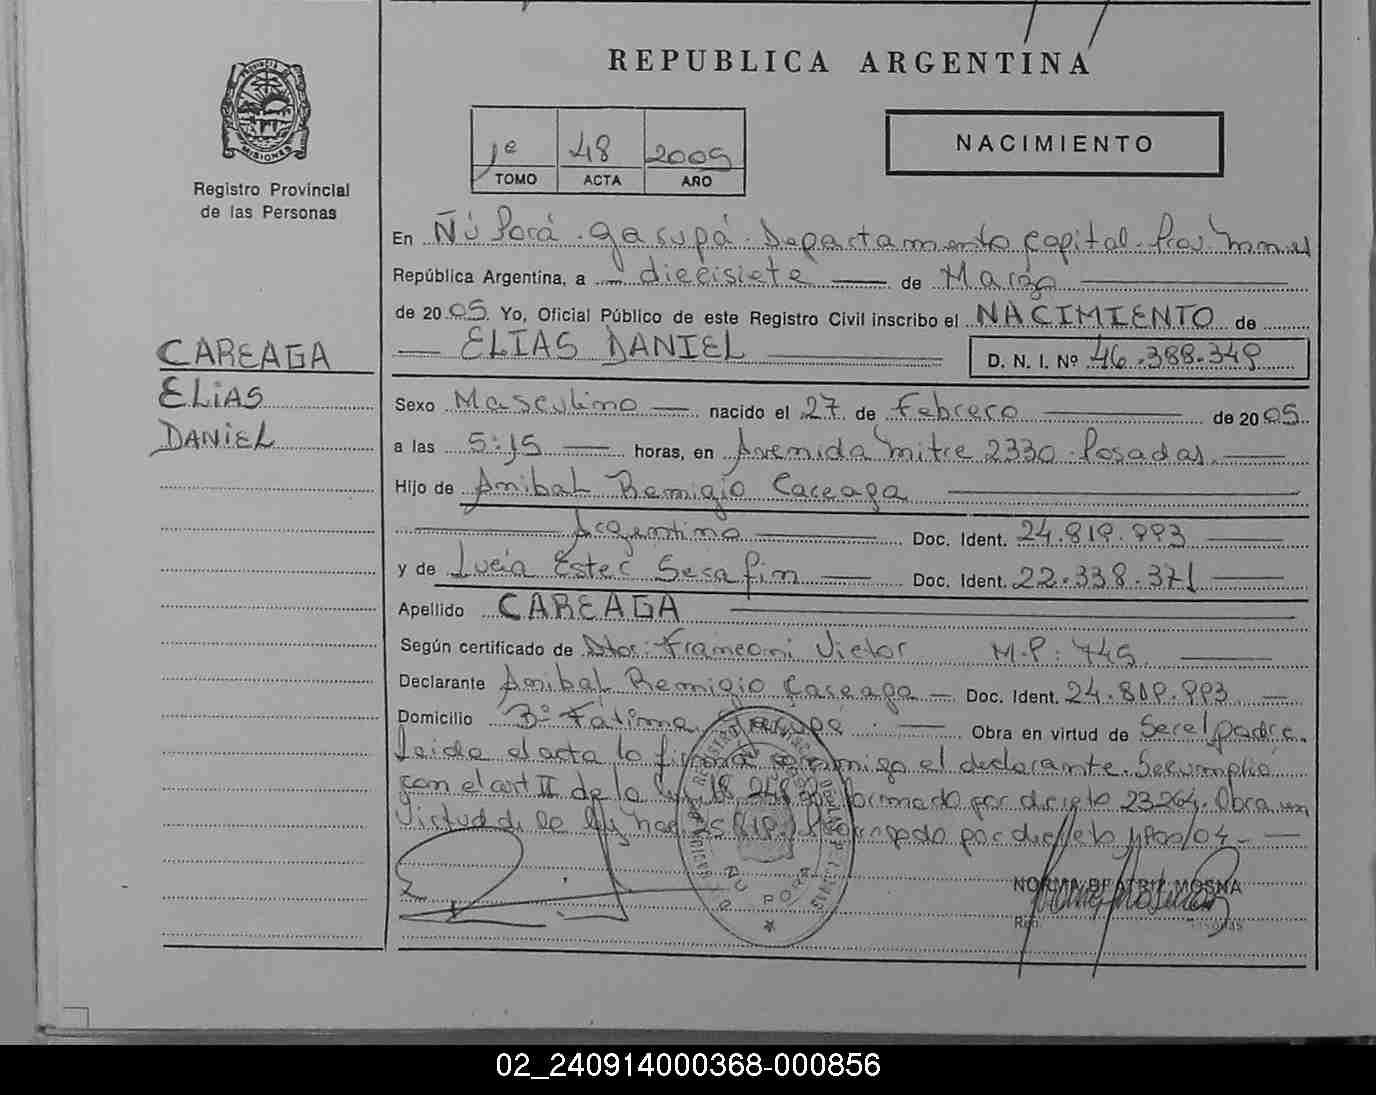 REPUBLICA ARGENTINA
PROVINCIA DE
MISIONES
Registro Provincial
de las Personas
1º 48 2005
TOMO ACTA AÑO
NACIMIENTO
En Ñú Porá . Garupá . Departamento Capital . Prov. Mnes
República Argentina, a diecisiete de Marzo
de 2005. Yo, Oficial Público de este Registro Civil inscribo el NACIMIENTO de
ELIAS DANIEL D. N. I. Nº 46.388.349
CAREAGA
ELIAS
DANIEL
Sexo Masculino nacido el 27 de Febrero de 2005.
a las 5:15 horas, en Avenida Mitre 2330 . Posadas
Hijo de Anibal Remigio Careaga
Argentino Doc. Ident. 24.819.993
y de Lucía Ester Serafin Doc. Ident. 22.338.371
Apellido CAREAGA
Según certificado de Dtor: Victor M.P: 745
Declarante Anibal Remigio Careaga Doc. Ident. 24.819.993
Domicilio Bº Fátima Garupá . Obra en virtud de Ser el padre.
Leida el acta la firma conmigo el declarante. Se cumplió
con el art II de la Ley 18.248 formado por decreto 23264. Obra en
virtud de la ley nac 25819 Prorrogado por decreto 1900/04 -
ÑU PORA
NORMA BEATRIZ MOSNA
02_240914000368-000856